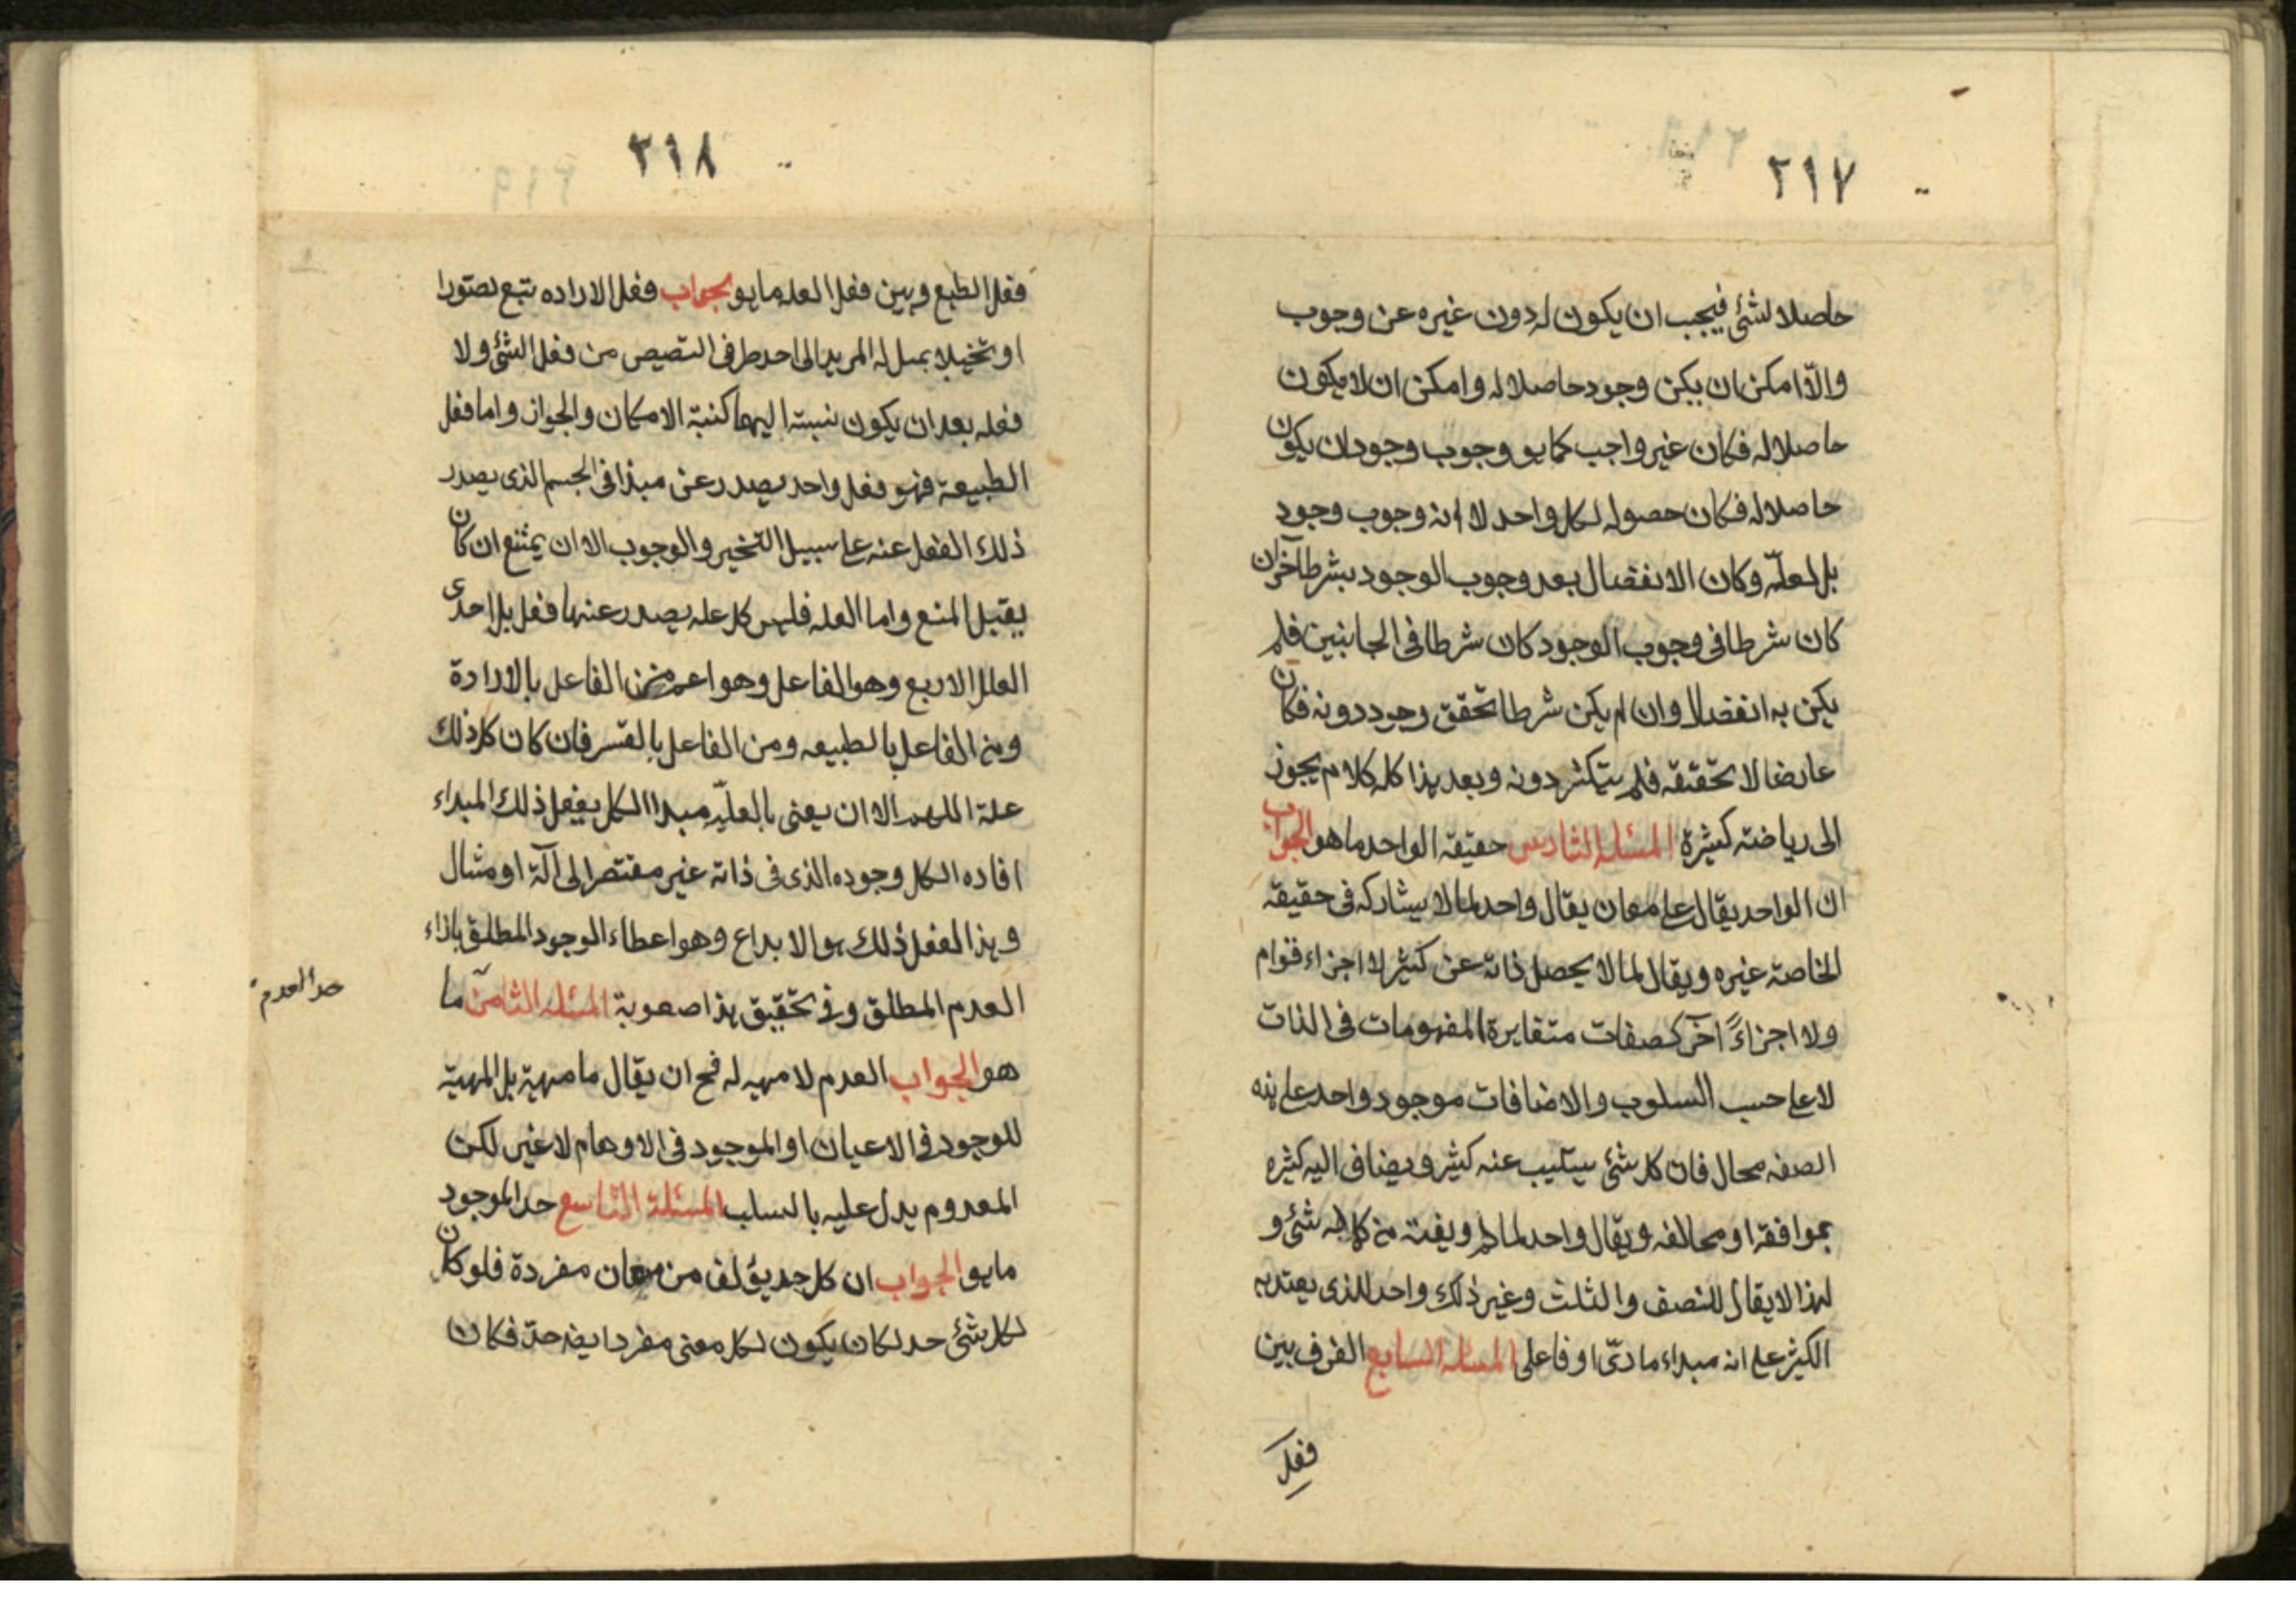 ٢١٧
حاصلا لشئ فيجب ان يكون له دون غيره عن وجوب
والّا امكن ان يكن وجود حاصلا له وامكن ان لا يكون
حاصلا له فكان غير واجب كما هو وجوب وجود ان يكون
حاصلا له فكان حصوله لكل واحد لا انه وجوب وجود
بل لعلّة وكان الانفصال بعد وجوب الوجود بشرط آخران
كان شرطا فى وجوب الوجود كان شرطا فى الجانبين فلم
يكن به انفصالا وان لم يكن شرطا تحقق وجود دونه فكان
عارضا لا تحققه فلم يتكثر دونه وبعد هذا كله كلام يجوز
الى رياضة كثيرة المسئله السادس حقيقة الواحد ما هو الجواب
ان الواحد يقال على معان يقال واحد لما لا يشاركه فى حقيقة
الخاصة غيره ويقال لما لا يحصل ذاته عن كثير لا اجزاء قوام
ولا اجزاءً آخر كصفات متغايرة المفهومات فى الذات
لا على حسب السلوب والاضافات موجود واحد على هذه
الصفه محال فان كل شئ يسلب عنه كثير ويضاف اليه كثيره
بموافقة او مخالفه ويقال واحد لما لم ويفته من كماله شئ و
لهذا لا يقال للنصف والثلث وغير ذلك واحد للذى يعتد به
الكثير على انه مبداء مادىّ او فاعلى المسئله السابع الفرق بين
فعل
٢١٨
فعل الطبع وبين فعل العله ما هو بجواب فعل الاراده تتبع تصورا
او تخيلا يميل له المريد الى احد طرفى النقيض من فعل الشئ ولا
فعله بعد ان يكون نسبته اليهما كنسبة الامكان والجواز واما فعل
الطبيعة فهو فعل واحد يصدر عن مبدا فى الجسم الذى يصدر
ذلك الفعل عنه على سبيل التخير والوجوب الا ان يمتنع ان كان
يقبل المنع واما العله فليس كل عله يصدر عنها فعل بل احدى
العلل الاربع وهو الفاعل وهو اعم من الفاعل بالارادة
ومن الفاعل بالطبيعه ومن الفاعل بالقسر فان كان كل ذلك
علة اللهم الا ان يعنى بالعليّه مبدا الكل بفعل ذلك المبداء
افاده الكل وجوده الذى فى ذاته غير مفتقر الى آلة او مثال
وهذا الفعل ذلك هو الابداع وهو اعطاء الوجود المطلق بازاء
العدم المطلق وفى تحقيق هذا صعوبة المسئله الثامن ما
حد العدم
هو الجواب العدم لا مهيه له فح ان يقال ما مهية بل المهية
للوجود فى الاعيان او الموجود فى الاوهام لا غير لكن
المعدوم يدل عليه بالسلب المسئلة التاسع حد الموجود
ما هو الجواب ان كل حد يؤلف من معان مفردة فلو كان
لكل شئ حد لكان يكون لكل معنى مفرد ايضه حدّ فكان